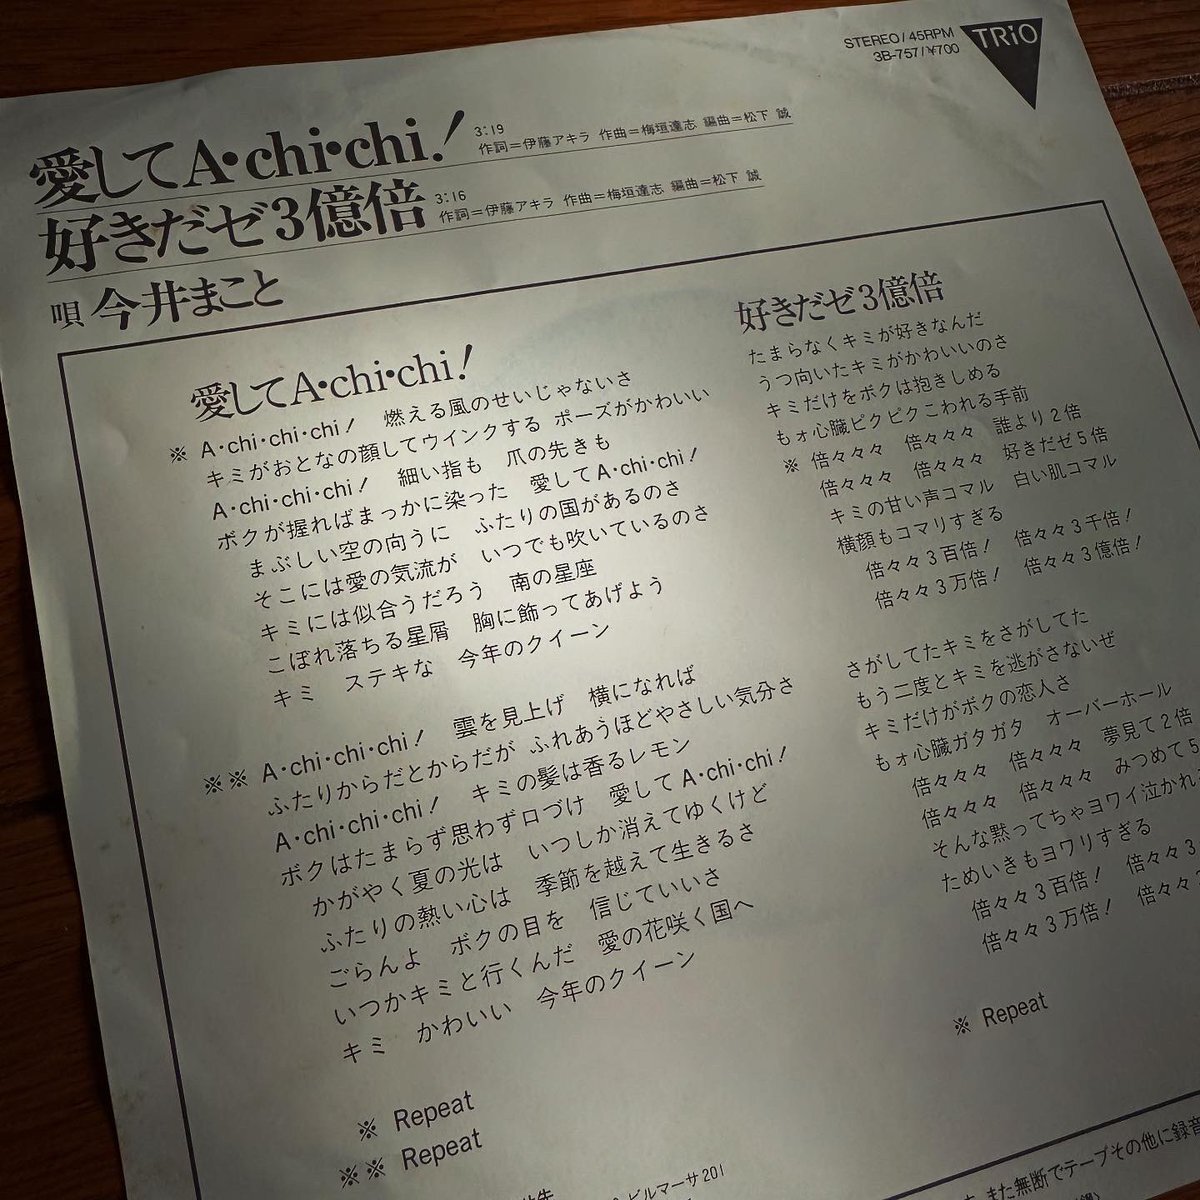 STEREO/45RPM
3B-757/¥700
TRIO
愛してA・chi・chi! 3:19 作詞=伊藤アキラ 作曲=梅垣達志 編曲=松下 誠
好きだゼ3億倍 3:16 作詞=伊藤アキラ 作曲=梅垣達志 編曲=松下 誠
唄 今井まこと
愛してA・chi・chi!
※ A・chi・chi・chi! 燃える風のせいじゃないさ
キミがおとなの顔してウインクする ポーズがかわいい
A・chi・chi・chi! 細い指も 爪の先きも
ボクが握ればまっかに染った 愛してA・chi・chi!
まぶしい空の向うに ふたりの国があるのさ
そこには愛の気流が いつでも吹いているのさ
キミには似合うだろう 南の星座
こぼれ落ちる星屑 胸に飾ってあげよう
キミ ステキな 今年のクイーン
※※ A・chi・chi・chi! 雲を見上げ 横になれば
ふたりからだとからだが ふれあうほどやさしい気分さ
A・chi・chi・chi! キミの髪は香るレモン
ボクはたまらず思わず口づけ 愛してA・chi・chi!
かがやく夏の光は いつしか消えてゆくけど
ふたりの熱い心は 季節を越えて生きるさ
ごらんよ ボクの目を 信じていいさ
いつかキミと行くんだ 愛の花咲く国へ
キミ かわいい 今年のクイーン
※ Repeat
※※ Repeat
好きだゼ3億倍
たまらなくキミが好きなんだ
うつ向いたキミがかわいいのさ
キミだけをボクは抱きしめる
もォ心臓ピクピクこわれる手前
※ 倍々々々 倍々々々 誰より2倍
倍々々々 倍々々々 好きだゼ5倍
キミの甘い声コマル 白い肌コマル
横顔もコマリすぎる
倍々々3百倍! 倍々々3千倍!
倍々々3万倍! 倍々々3億倍!
さがしてたキミをさがしてた
もう二度とキミを逃がさないぜ
キミだけがボクの恋人さ
もォ心臓ガタガタ オーバーホール
倍々々々 倍々々々 夢見て2倍
倍々々々 倍々々々 みつめて5
そんな黙ってちゃヨワイ泣かれ
ためいきもヨワリすぎる
倍々々3百倍! 倍々々3
倍々々3万倍! 倍々々
※ Repeat
ビルマーサ201
また無断でテープその他に録音